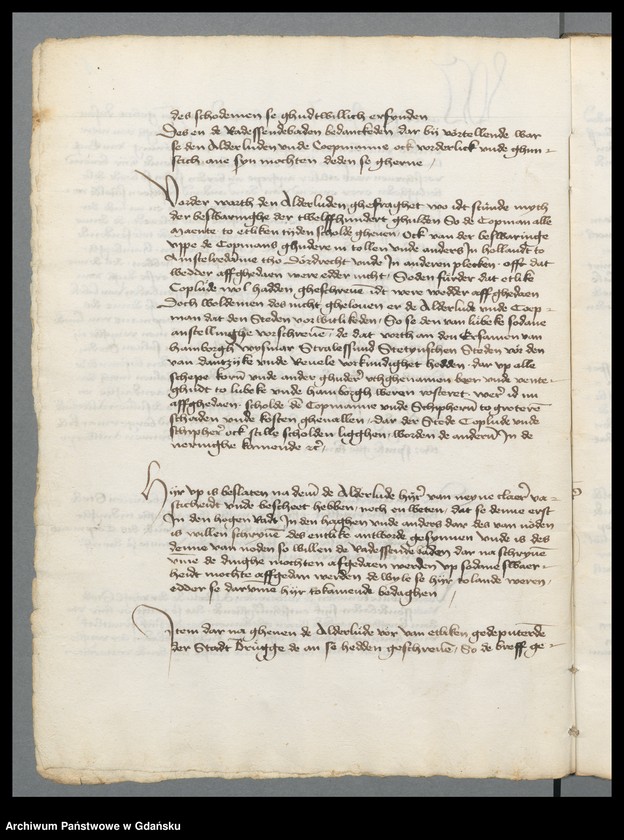 des schodemen se ghudtwillich erfynden
Des en de Radessendebaden bedanckeden dar bij vortellende war
se den Alderluden vnde Coepmanne ock vorderlick vnde ghun-
stich ane syn mochten deden se gherne /
Vorder warth den Alderluden ghefraghet wo idt stunde myth
der beswaringhe der twelffhundert ghulden So de Copman alle
to etliken tyden scholde gheuen. Ock van der beswaringe
vppe de Copmans ghudere in tollen vnde anders In hollandt to
Amstelredamme tho Dordrecht vnde In anderen plecken. offt dat
wedder affghedaen were edder nicht / So den furder dat etlike
Coplude wol hadden gheschreuē idt were wedder aff ghedaen
Doch woldemen des nicht ghelouen er de Alderlude vnde Coep-
man dat den Steden vorwitlikeden / So se den van lubeke sodane
anstellinghe vorschreuē / de dat vorth an den Ersamen van
hamborgh wysmar Stralessund Stetynschen Steden vor den
van dantzike vnde Reuele vorkundighet hedden. dar vp alle
schepe korn vnde ander ghuder vthghenamen beer vnde
to lubeke vnde hamborgh weren rosteret. wer id nu
affghedaen. scholde de Copmanne vnde Schipheren to groteren
schaden vnde kosten ghevallen / dar der Stede Coplude vnde
schipher ock stille scholden ligghen / worden de anderen In de
neringhe kamende etc /
Hijr vp is beslaten na dem de Alderlude hijr van neyne claer va-
sticheidt vnde bescheet hebben / noch en weten / dat se denne erst
In den hogen Radt In den haghen vnde anders dar des van noden
is willen schryuē des entlike antworde gesynnen vnde is des
denne van noden so willen de Radessende baden dar na schryuē
vmme de dinghe mochten afgedaen werden vp sodane swaer-
heidt mochte affgedan werden de wyle se hijr to lande weren /
edder se darvmme hijr tokamende bedaghen /
Item dar na gheuen de Alderlude vor van etliken gedeputerde
der Stadt Brugge de an se hedden geschreuē / So de breff ge-
Archiwum Państwowe w Gdańsku